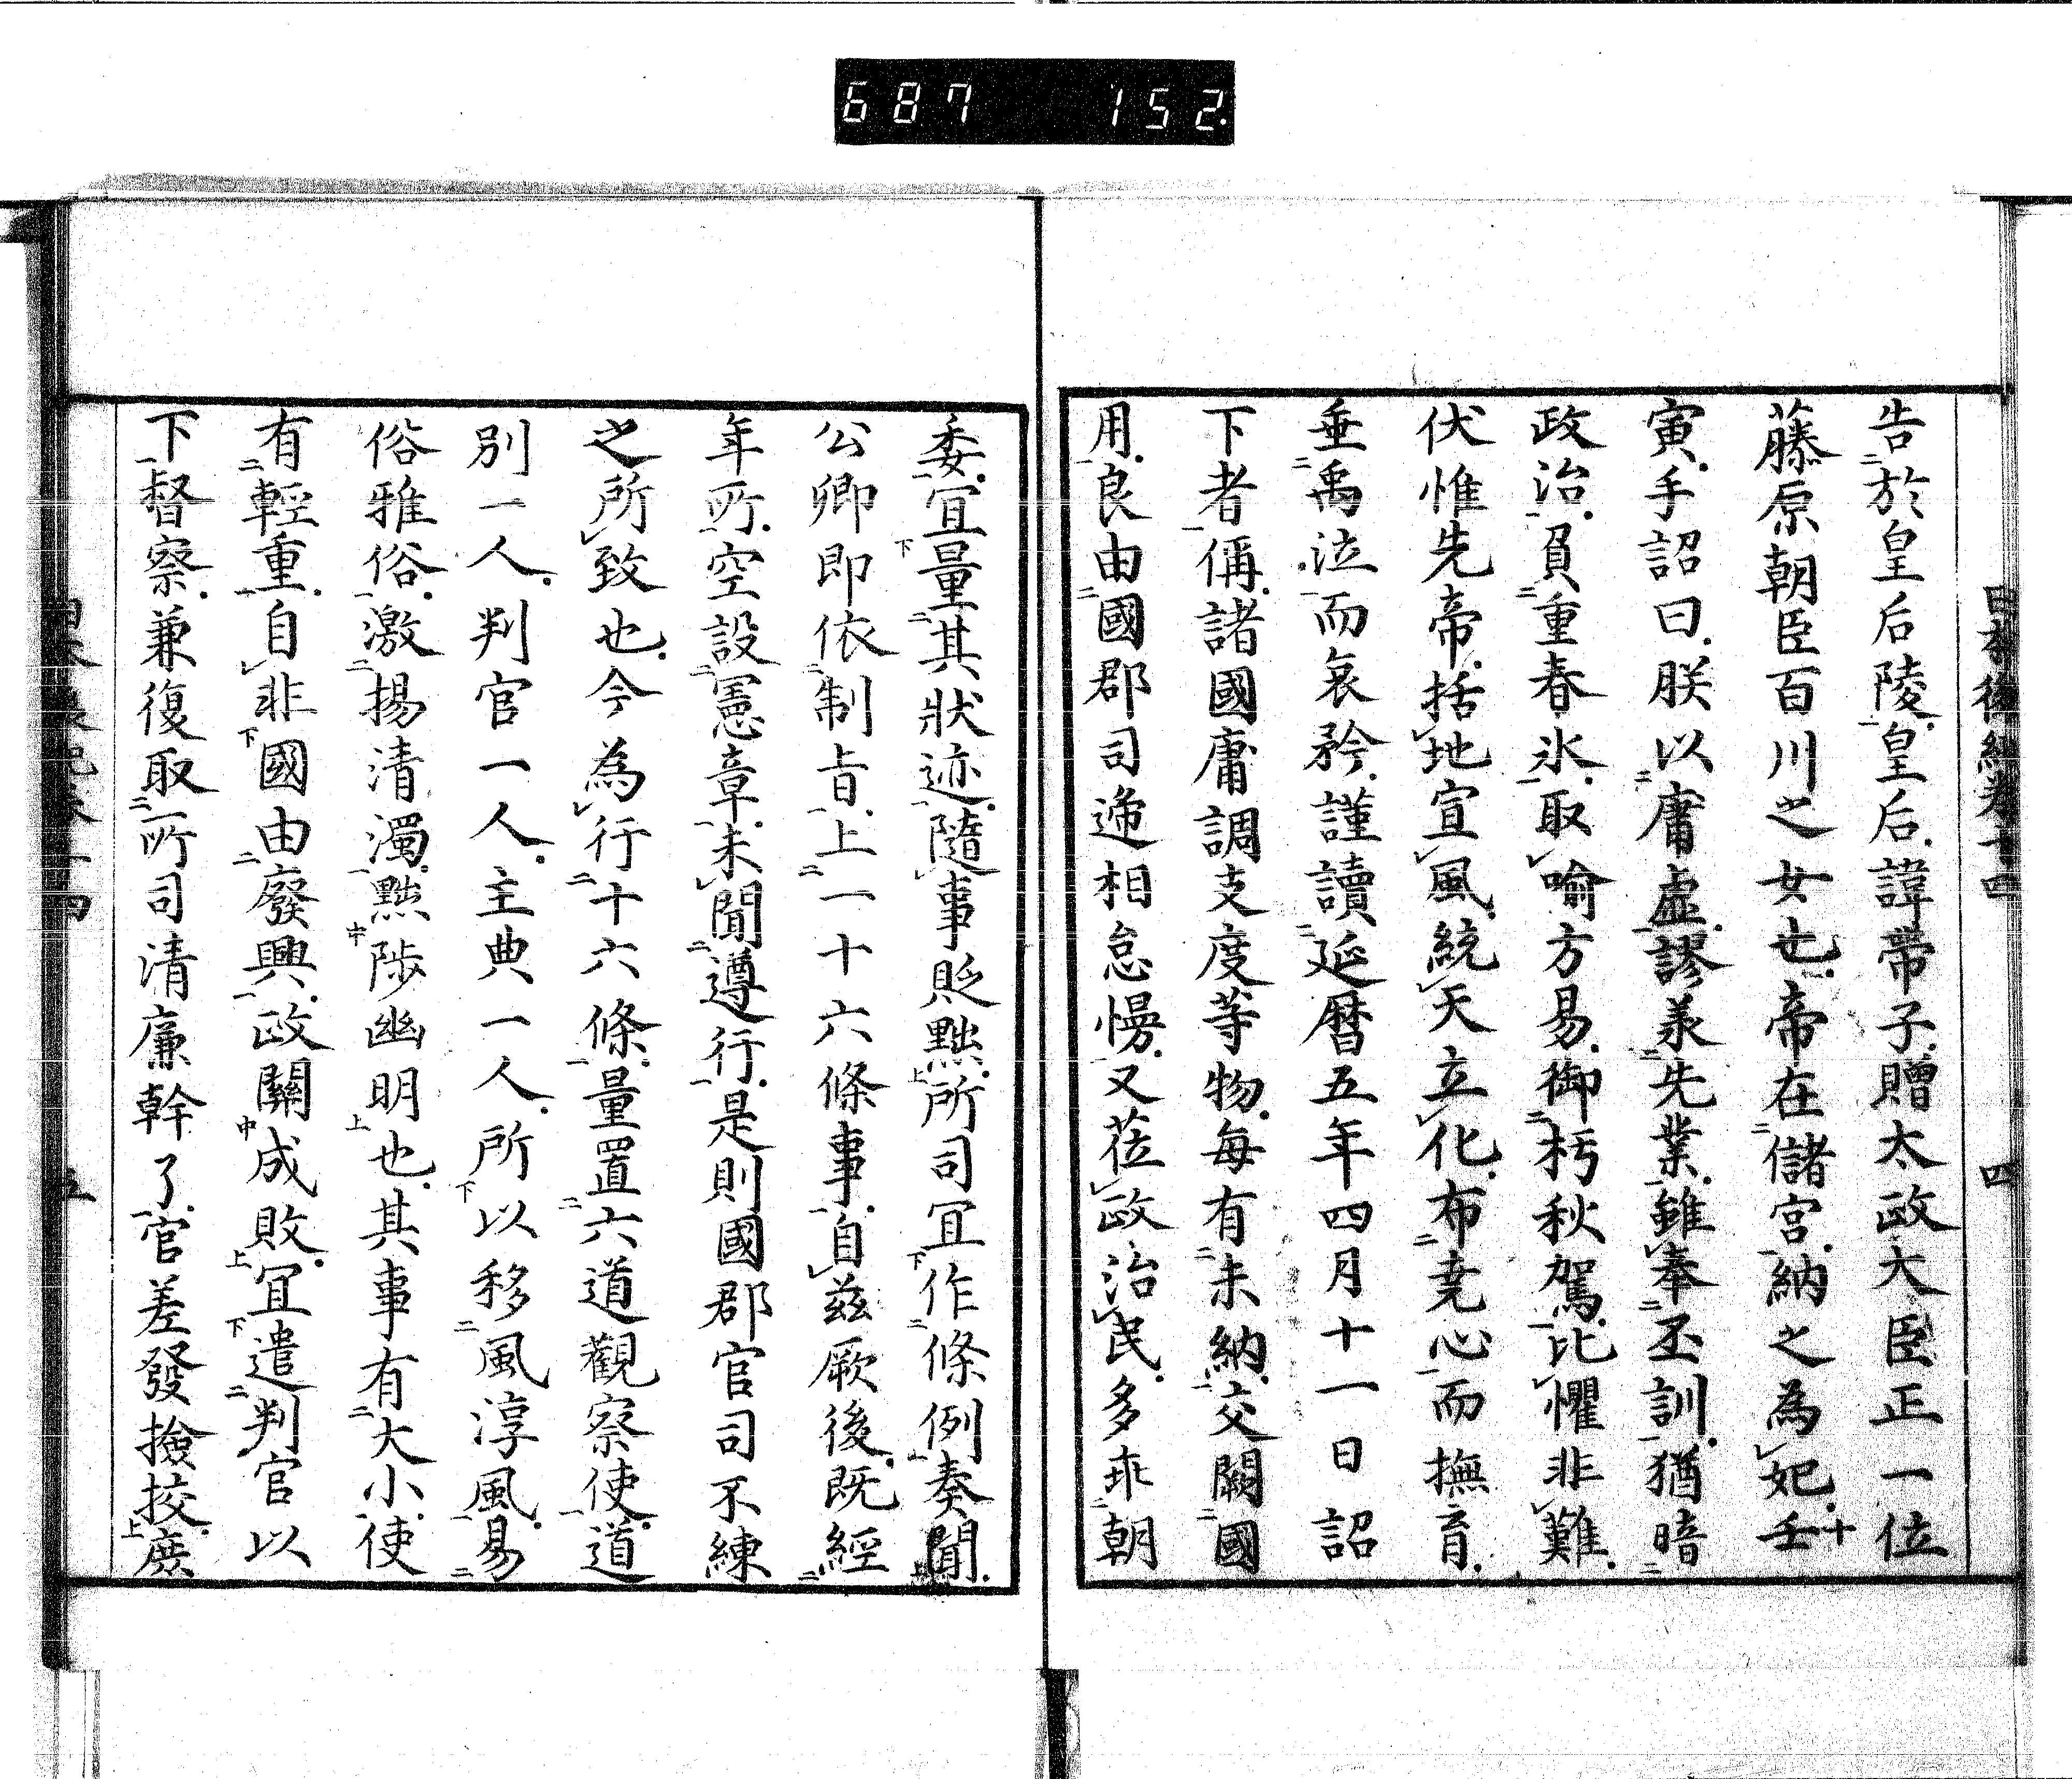 687 152.
日本後紀卷十四 四
告於皇后陵皇后諱帶子贈太政大臣正一位
藤原朝臣百川之女也帝在儲宮納之為妃壬十
寅手詔曰朕以庸虛謬兼先業雖奉丕訓猶暗
政治負重春氷取喻方易御朽秋駕比懼非難
伏惟先帝括地宣風統天立化布堯心而撫育
垂禹泣而哀矜謹讀延曆五年四月十一日詔
下者偁諸國庸調支度等物每有未納交闕國
用良由國郡司遞相怠慢又莅政治民多乖朝
委宜量其狀迹隨事貶黜所司宜作條例奏聞
公卿即依制旨上一十六條事自茲厥後既經
年所空設憲章未聞遵行是則國郡官司不練
之所致也今為行十六條量置六道觀察使道
別一人判官一人主典一人所以移風淳風易
俗雅俗激揚清濁黜陟幽明也其事有大小使
有輕重自非國由廢興政關成敗宜遣判官以
下督察兼復取所司清廉幹了官差發撿挍庶
日本後紀卷十四 五